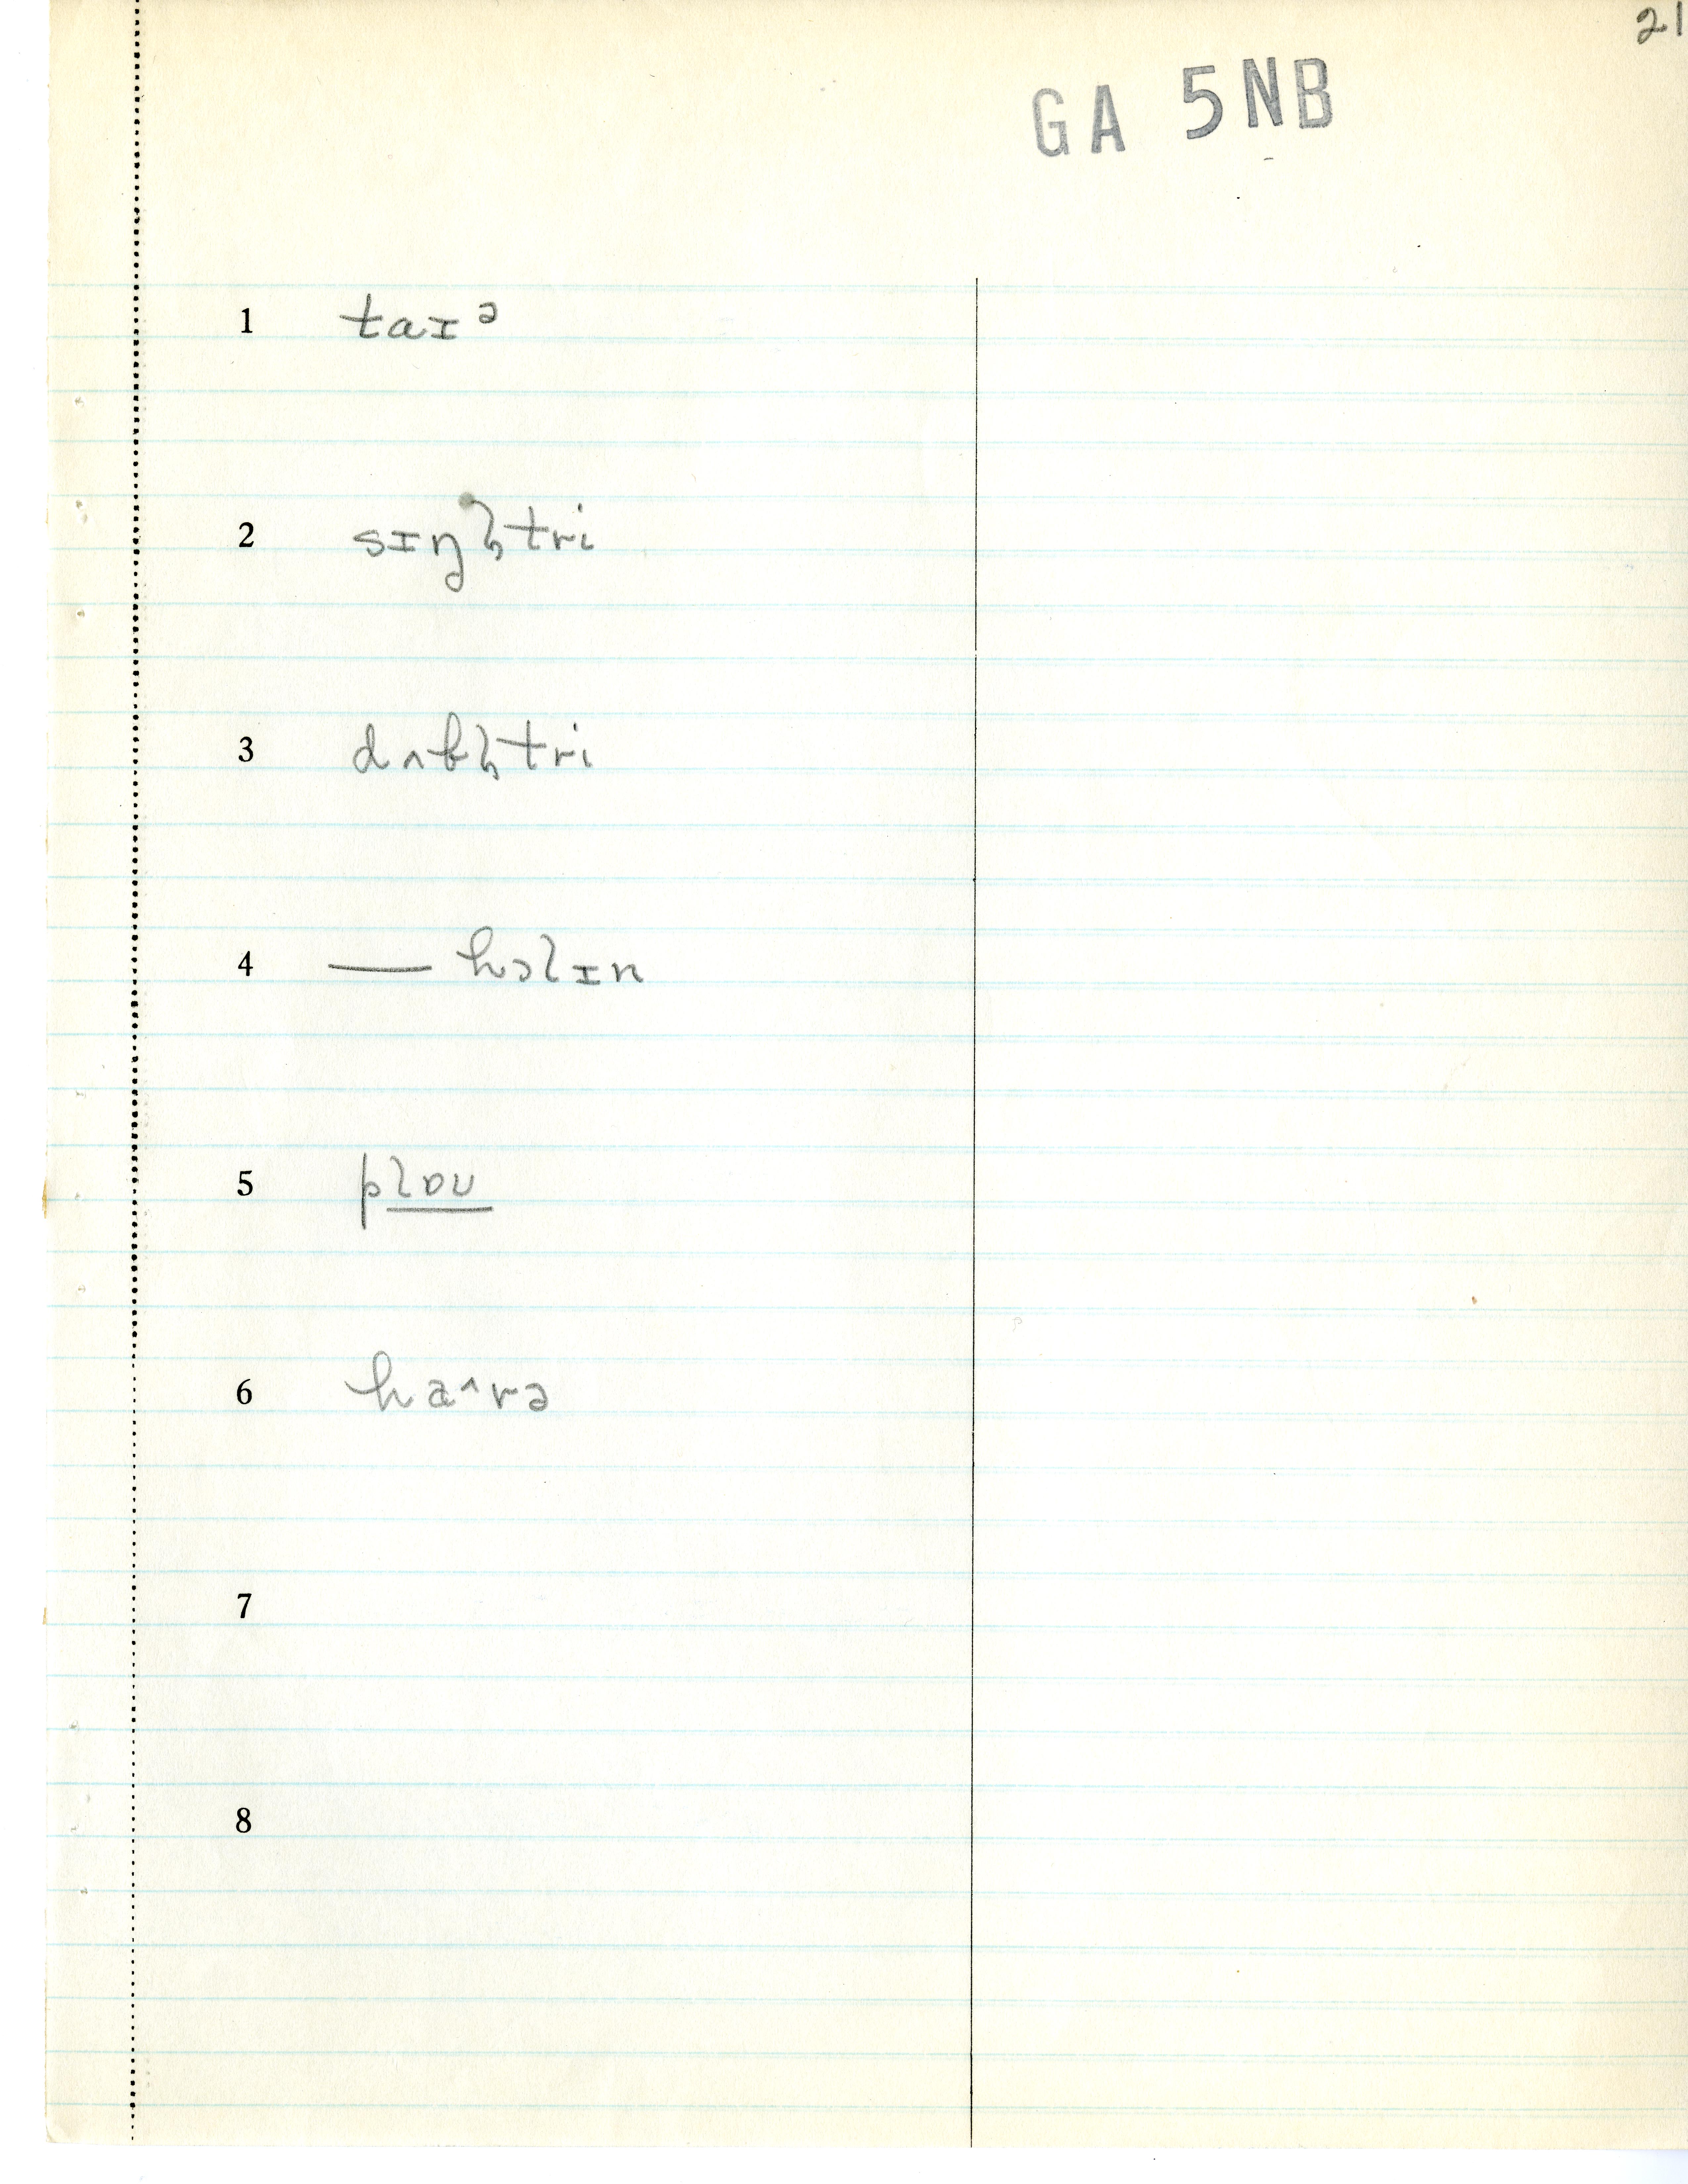 21
GA 5NB
1 taɪᵊ
2 sɪŋl̩tri
3 dʌbl̩tri
4 — hɔlɪn
5 plɒu
6 ha^rə
7
8